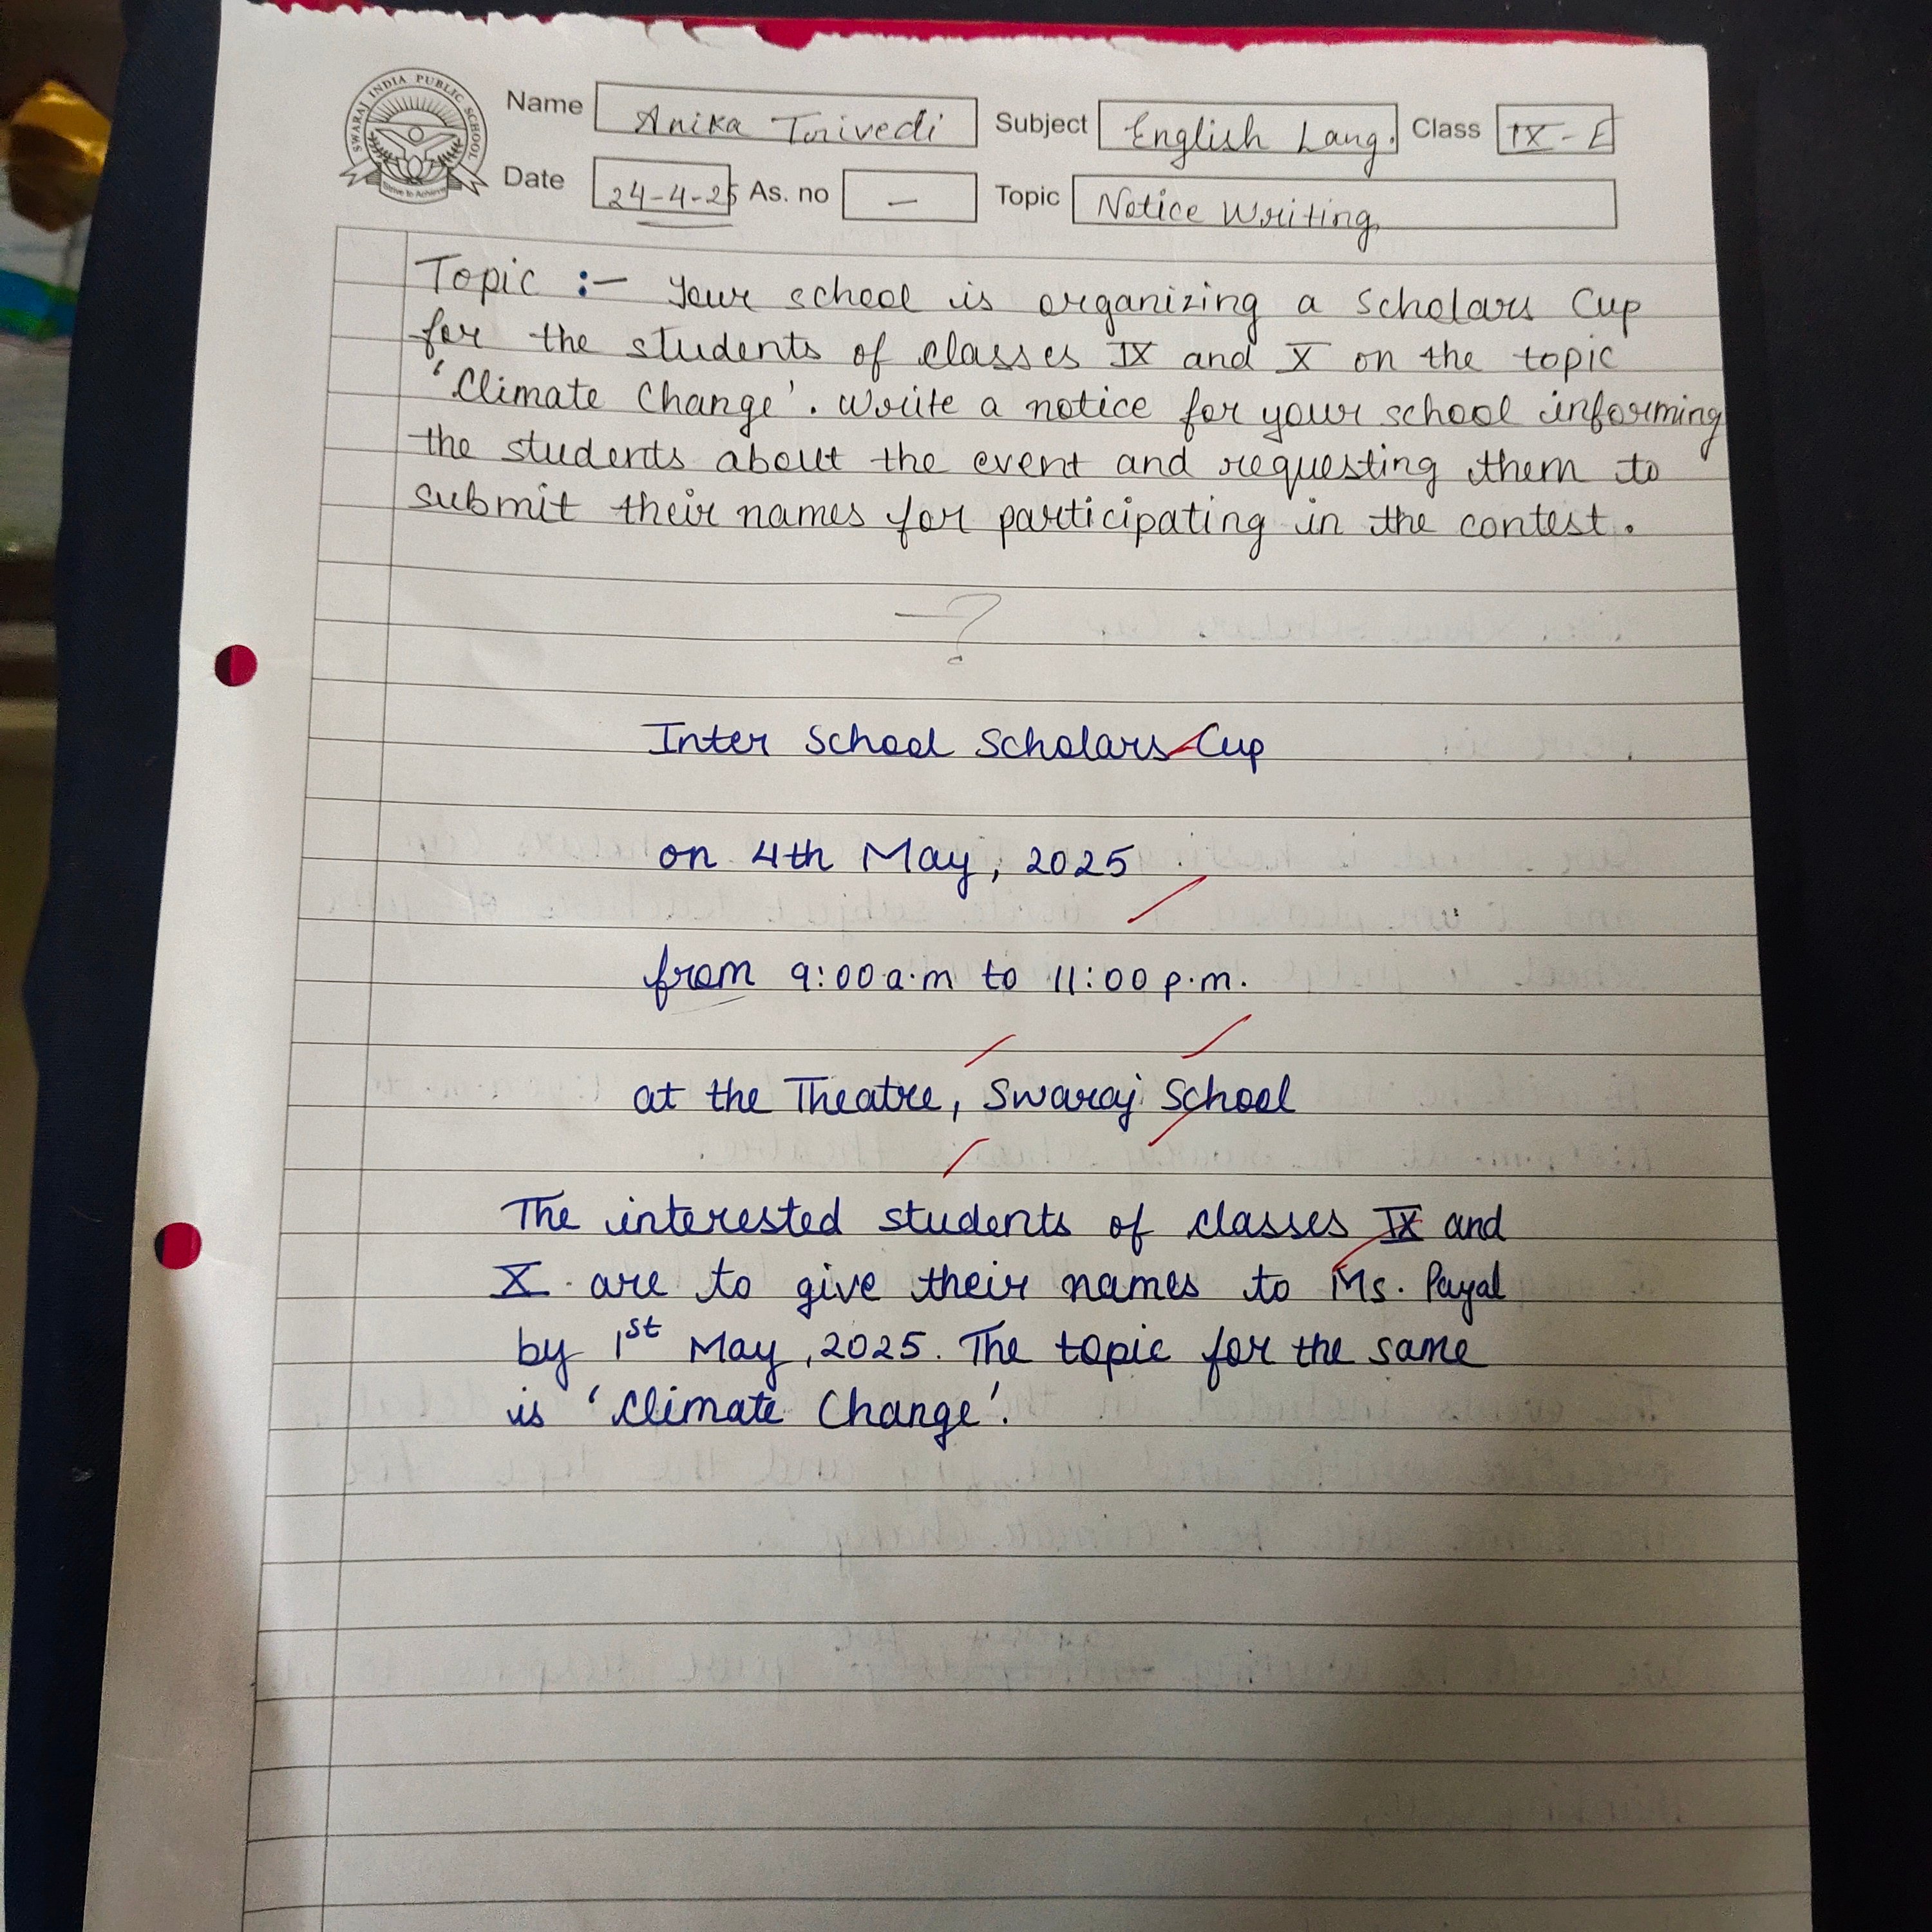 SWARAJ INDIA PUBLIC SCHOOL
Strive to Achieve
Name Anika Trivedi Subject English Lang. Class IX-E
Date 24-4-25 As. no - Topic Notice Writing
Topic :- Your school is organizing a Scholars Cup
for the students of classes IX and X on the topic
'Climate Change'. Write a notice for your school informing
the students about the event and requesting them to
submit their names for participating in the contest.
-?
Inter School Scholars Cup
on 4th May, 2025
from 9:00a.m to 11:00 p.m.
at the Theatre, Swaraj School
The interested students of classes IX and
X are to give their names to Ms. Payal
by 1st May, 2025. The topic for the same
is 'Climate Change'.